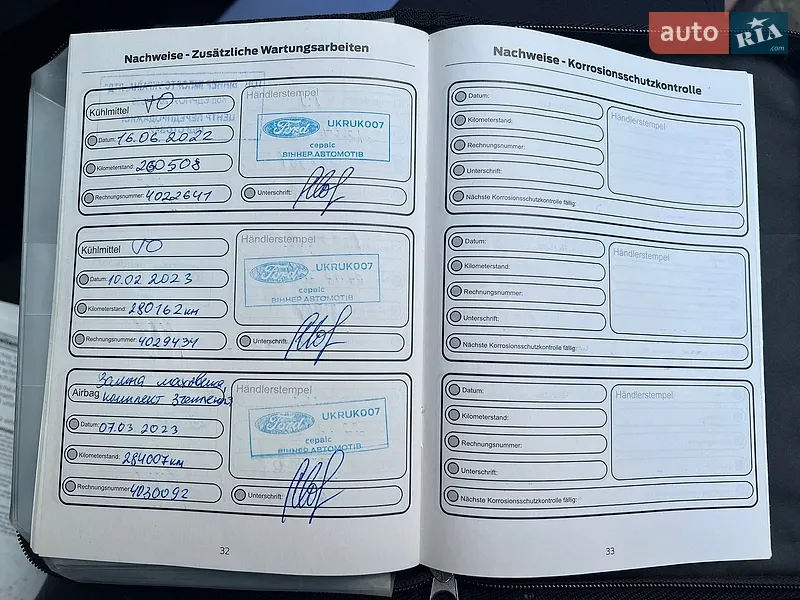 auto RIA .com
Nachweise - Zusätzliche Wartungsarbeiten
Kühlmittel ТО
Händlerstempel
Datum: 16.06.2022
Ford UKRUK007
сервіс
ВІННЕР АВТОМОТІВ
Kilometerstand: 260508
Rechnungsnummer: 4022641
Unterschrift:
Kühlmittel ТО
Händlerstempel
Datum: 10.02 2023
Ford UKRUK007
сервіс
ВІННЕР АВТОМОТІВ
Kilometerstand: 280162 км
Rechnungsnummer: 4029434
Unterschrift:
Заміна маховика,
Airbag комплект зчеплення
Händlerstempel
Datum: 07.03 2023
Ford UKRUK007
сервіс
ВІННЕР АВТОМОТІВ
Kilometerstand: 284007 км
Rechnungsnummer: 4030092
Unterschrift:
32
Nachweise - Korrosionsschutzkontrolle
Datum:
Händlerstempel
Kilometerstand:
Rechnungsnummer:
Unterschrift:
Nächste Korrosionsschutzkontrolle fällig:
Datum:
Händlerstempel
Kilometerstand:
Rechnungsnummer:
Unterschrift:
Nächste Korrosionsschutzkontrolle fällig:
Datum:
Händlerstempel
Kilometerstand:
Rechnungsnummer:
Unterschrift:
Nächste Korrosionsschutzkontrolle fällig:
33